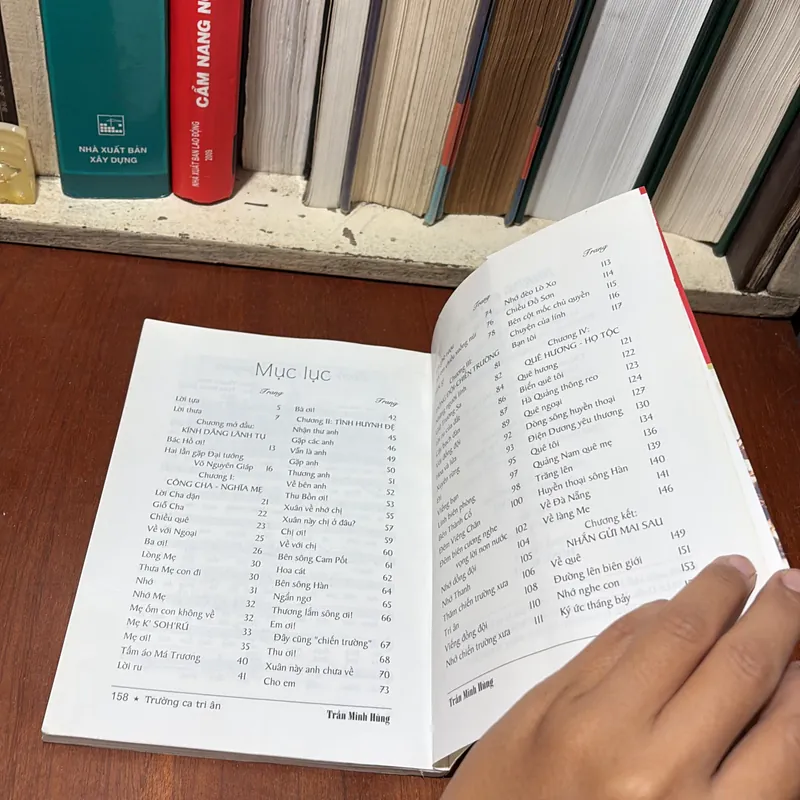 NHÀ XUẤT BẢN
XÂY DỰNG
CẨM NANG
NHÀ XUẤT BẢN LAO ĐỘNG
2009
Mục lục
Trang
Lời tựa 5
Lời thưa 7
Chương mở đầu:
KÍNH DÂNG LÃNH TỤ
Bác Hồ ơi! 13
Hai lần gặp Đại tướng
Võ Nguyên Giáp 16
Chương I:
CÔNG CHA - NGHĨA MẸ
Lời Cha dặn 21
Giỗ Cha 22
Chiều quê 23
Về với Ngoại 25
Ba ơi! 26
Lòng Mẹ 30
Thưa Mẹ con đi 30
Nhớ 31
Nhớ Mẹ 32
Mẹ ốm con không về 32
Mẹ K' SOH'RŨ 33
Mẹ ơi! 35
Tấm áo Má Trương 40
Lời ru 41
Trang
Bà ơi! 42
Chương II: TÌNH HUYNH ĐỆ
Nhận thư anh 45
Gặp các anh 46
Vẫn là anh 49
Gặp anh 50
Thương anh 51
Về bên anh 52
Thu Bồn ơi! 53
Xuân về nhớ chị 55
Xuân này chị ở đâu? 57
Chị ơi! 59
Về với chị 60
Bên sông Cam Pốt 61
Hoa cát 62
Bên sông Hàn 64
Ngẩn ngơ 65
Thương lắm sông ơi! 66
Em ơi!
Đây cũng "chiến trường" 67
Thu ơi! 68
Xuân này anh chưa về 70
Cho em 73
158 ★ Trường ca tri ân
Trần Minh Hùng
Trang
74
76
78
Chương III:
81
82
84
86
87
90
92
93
95
97
Viếng bạn 98
Lính biên phòng 100
Bên Thành Cổ
Đêm Viêng Chăn 102
Đêm biên cương nghe
vọng lời non nước 104
Nhớ đồng đội 106
Nhớ Thanh 108
Thăm chiến trường xưa
Tri ân 110
Viếng đồng đội 111
Nhớ chiến trường xưa
Trang
Nhớ đèo Lò Xo 113
Chiều Đồ Sơn 114
Bên cột mốc chủ quyền 115
Chuyện của lính 116
Bạn tôi 117
Chương IV:
QUÊ HƯƠNG - HỌ TỘC
Quê hương 121
Biển quê tôi 122
Hà Quảng thông reo 123
Quê ngoại 124
Dòng sông huyền thoại 127
Điện Dương yêu thương 130
Quê tôi 134
Quảng Nam quê mẹ 136
Trăng lên 139
Huyền thoại sông Hàn 140
Về Đà Nẵng 141
Về làng Mẹ 146
Chương kết:
NHẮN GỬI MAI SAU
Về quê 149
Đường lên biên giới 151
Nhớ nghe con 153
Ký ức tháng bảy
Trần Minh Hùng